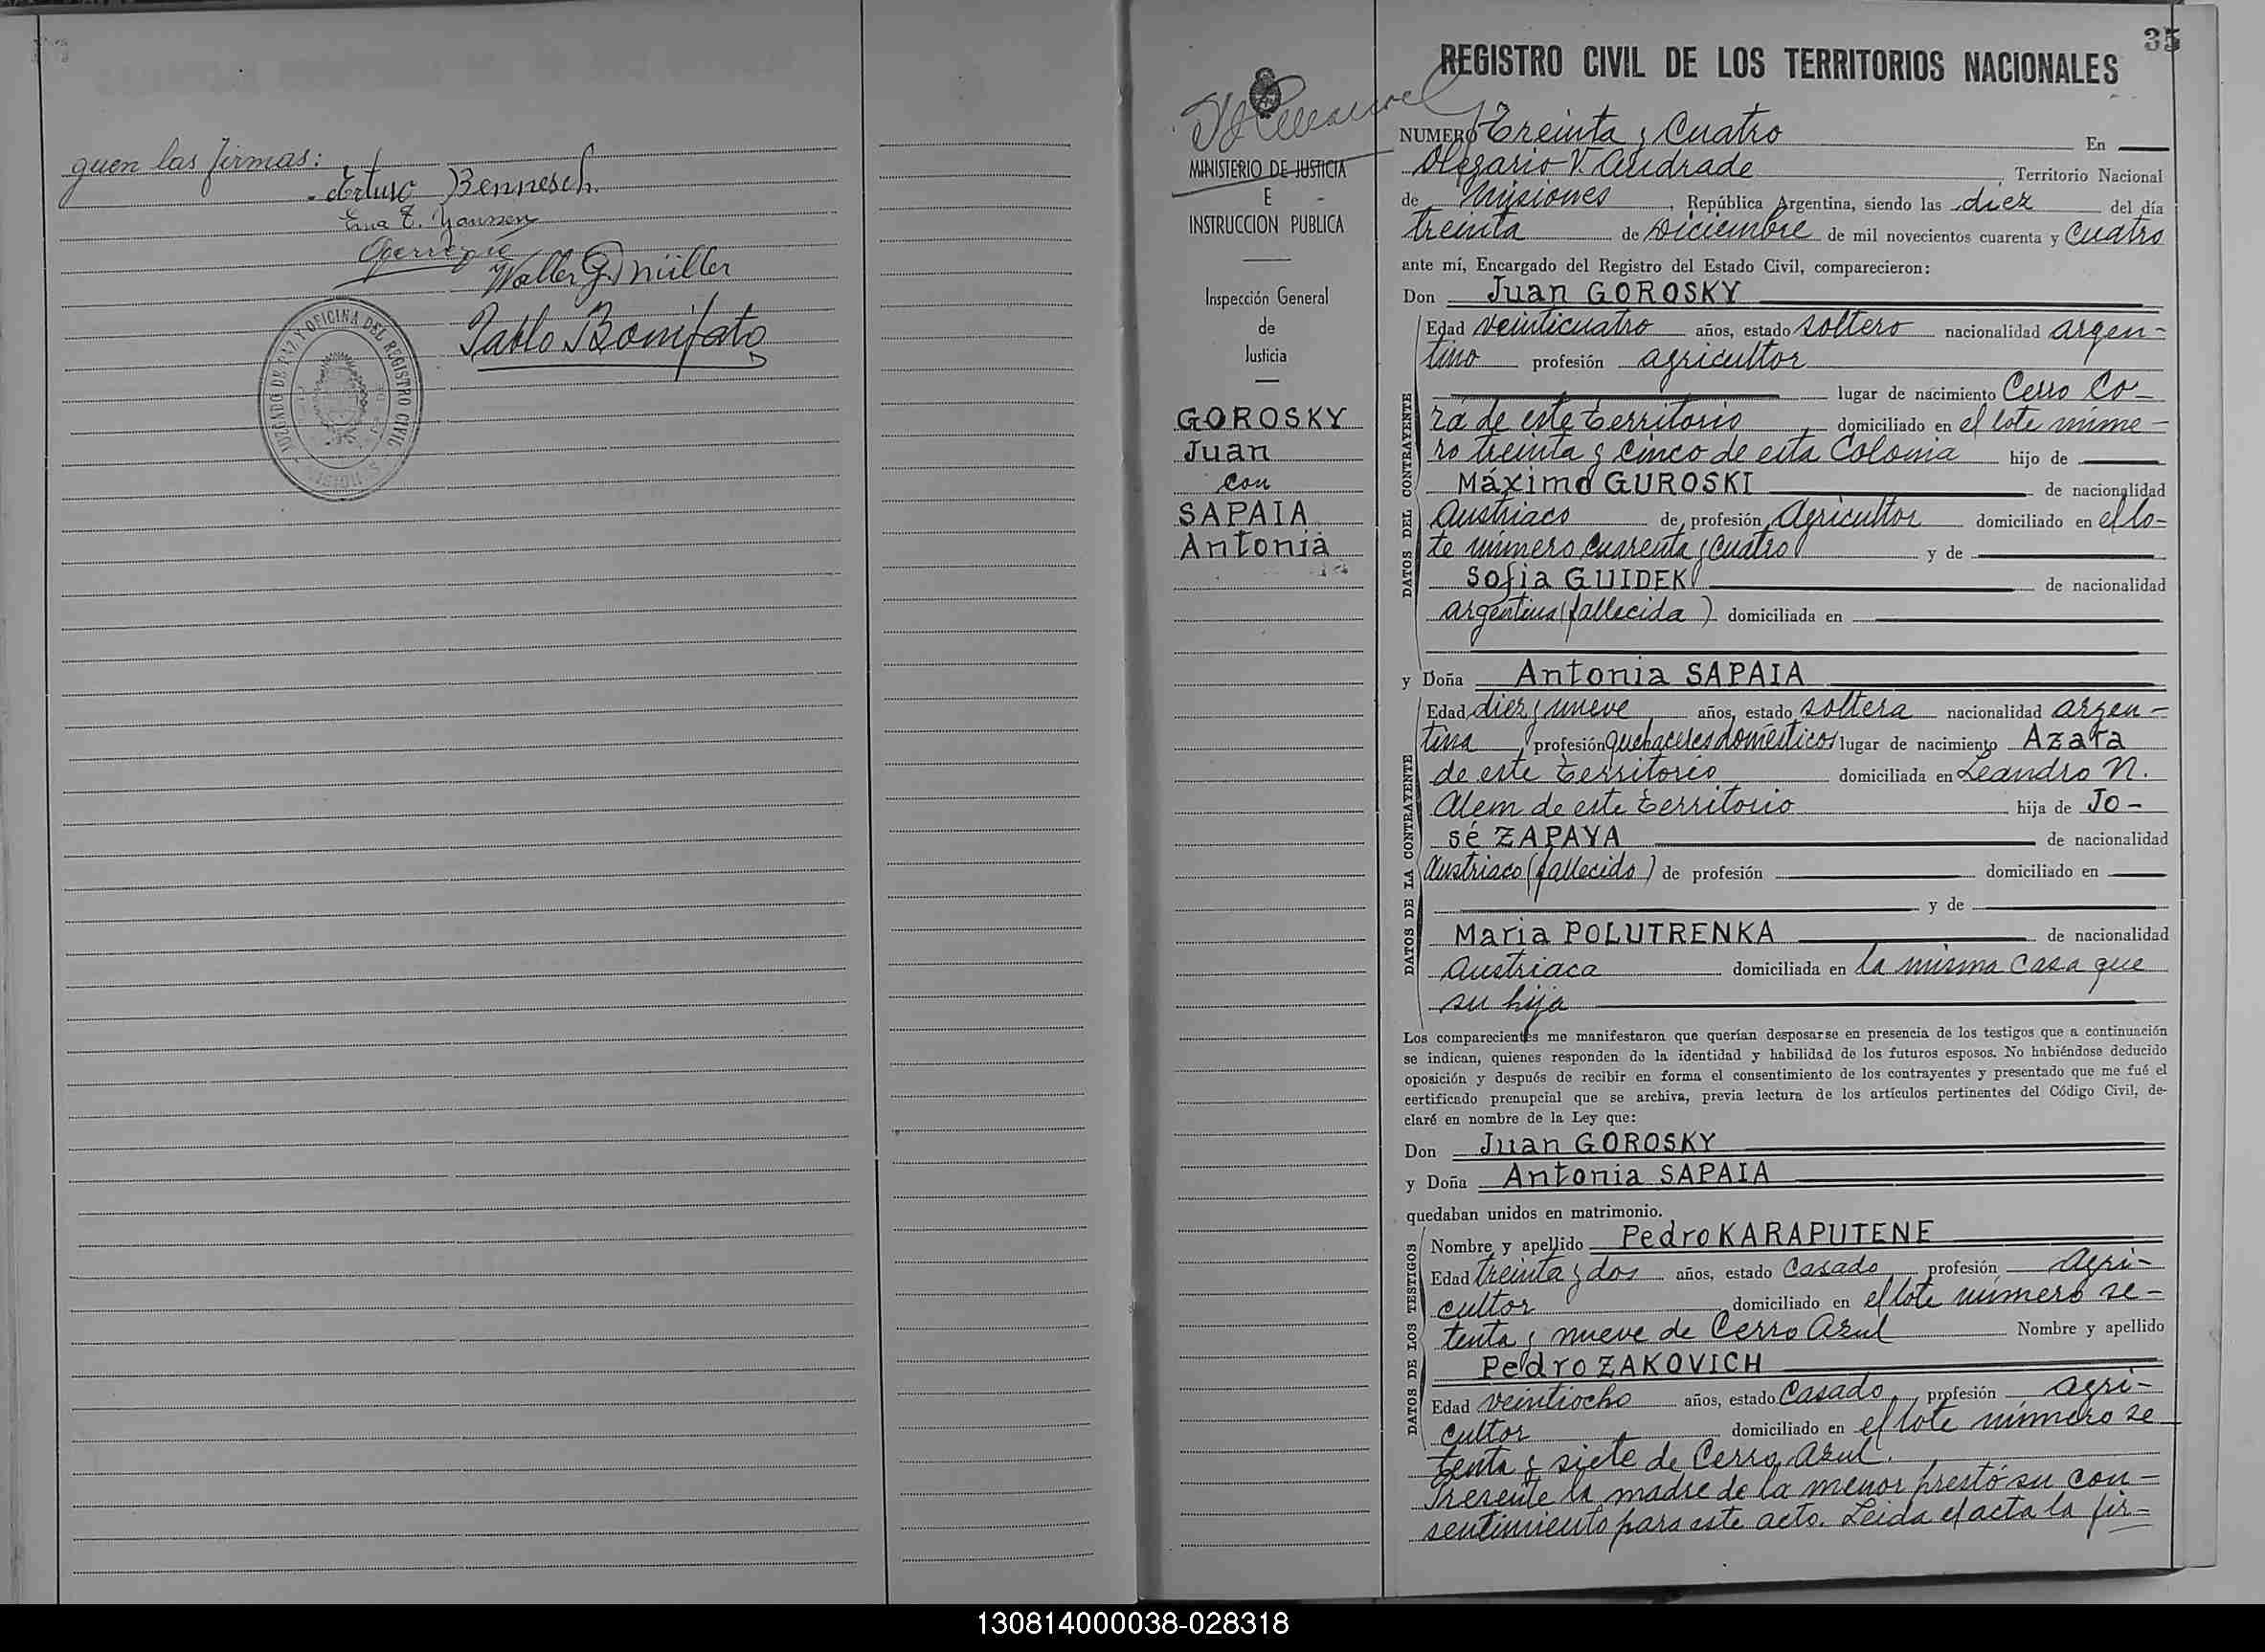 guen las firmas:
Arturo Bennesch.
Walter G. Müller
Pablo Bonifato
JUZGADO DE PAZ Y OFICINA DEL REGISTRO CIVIL
MISIONES
MINISTERIO DE JUSTICIA
E
INSTRUCCION PUBLICA
Inspección General
de
Justicia
GOROSKY
Juan
con
SAPAIA
Antonia
35
REGISTRO CIVIL DE LOS TERRITORIOS NACIONALES
NUMERO Treinta y Cuatro En
Olegario V. Andrade Territorio Nacional
de Misiones, República Argentina, siendo las diez del día
treinta de Diciembre de mil novecientos cuarenta y Cuatro
ante mí, Encargado del Registro del Estado Civil, comparecieron:
Don Juan GOROSKY
DATOS DEL CONTRAYENTE
Edad veinticuatro años, estado soltero nacionalidad argen-
tino profesión agricultor
lugar de nacimiento Cerro Co-
rá de este territorio, domiciliado en el lote núme-
ro treinta y cinco de esta Colonia hijo de
Máximo GUROSKI de nacionalidad
Austriaco de profesión Agricultor domiciliado en el lo-
te número cuarenta y cuatro y de
Sofia GUIDEK de nacionalidad
argentina (fallecida) domiciliada en
y Doña Antonia SAPAIA
DATOS DE LA CONTRAYENTE
Edad diez y nueve años, estado soltera nacionalidad argen-
tina, profesión quehaceres domésticos lugar de nacimiento Azara
de este territorio domiciliada en Leandro N.
Alem de este territorio hija de Jo-
sé ZAPAYA de nacionalidad
Austriaco (fallecido) de profesión domiciliado en
y de
Maria POLUTRENKA de nacionalidad
Austriaca domiciliada en la misma casa que
su hija
Los comparecientes me manifestaron que querían desposarse en presencia de los testigos que a continuación
se indican, quienes responden de la identidad y habilidad de los futuros esposos. No habiéndose deducido
oposición y después de recibir en forma el consentimiento de los contrayentes y presentado que me fué el
certificado prenupcial que se archiva, previa lectura de los artículos pertinentes del Código Civil, de-
claré en nombre de la Ley que:
Don Juan GOROSKY
y Doña Antonia SAPAIA
quedaban unidos en matrimonio.
DATOS DE LOS TESTIGOS
Nombre y apellido Pedro KARAPUTENE
Edad treinta y dos años, estado Casado profesión Agri-
cultor domiciliado en el lote número se-
tenta y nueve de Cerro Azul Nombre y apellido
Pedro ZAKOVICH
Edad veintiocho años, estado Casado, profesión agri-
cultor domiciliado en el lote número se
tenta y siete de Cerro Azul.
Presente la madre de la menor prestó su con-
sentimiento para este acto. Leida el acta la fir-
130814000038-028318